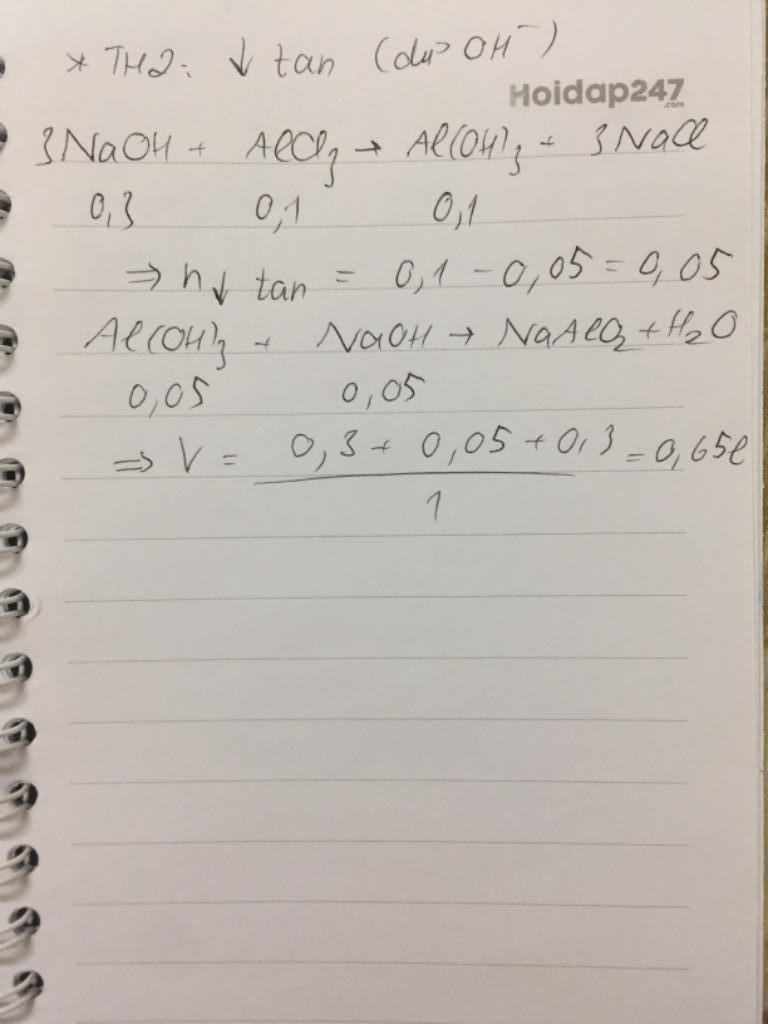 * TH2: ↓ tan (dư OH⁻)
Hoidap247
.com
3NaOH + AlCl₃ → Al(OH)₃ + 3NaCl
0,3 0,1 0,1
⇒ n↓ tan = 0,1 - 0,05 = 0,05
Al(OH)₃ + NaOH → NaAlO₂ + H₂O
0,05 0,05
⇒ V = 0,3 + 0,05 + 0,3 = 0,65l
1